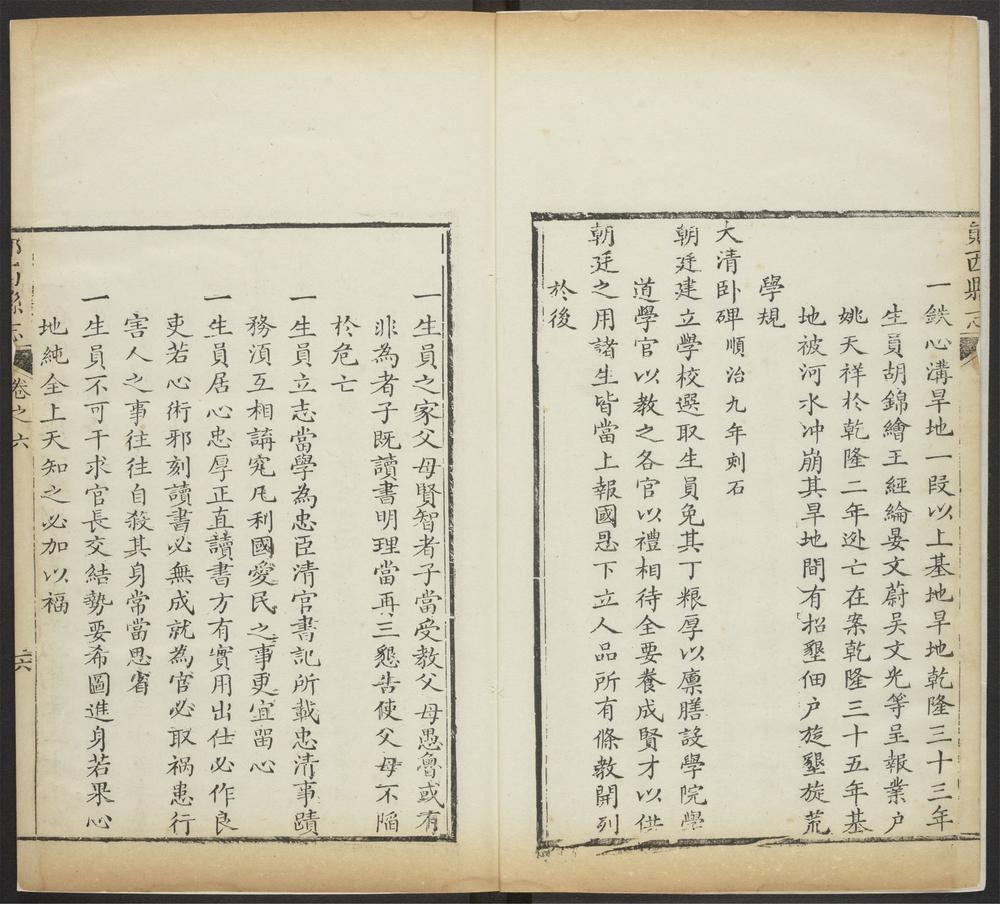 鄖西縣志
一鉄心溝旱地一段以上基地旱地乾隆三十三年
生員胡錦繪王經綸晏文蔚吴文光等呈報業户
姚天祥於乾隆二年迯亡在案乾隆三十五年基
地被河水冲崩其旱地間有招墾佃户旋墾旋荒
學規
大清卧碑順治九年刻石
朝廷建立學校選取生員免其丁粮厚以廪膳設學院學
道學官以教之各官以禮相待全要養成賢才以供
朝廷之用諸生皆當上報國恩下立人品所有條教開列
於後
一生員之家父母賢智者子當受教父母愚魯或有
非為者子既讀書明理當再三懇告使父母不陷
於危亡
一生員立志當學為忠臣清官書記所載忠清事蹟
務須互相講究凡利國愛民之事更宜留心
一生員居心忠厚正直讀書方有實用出仕必作良
吏若心術邪刻讀書必無成就為官必取禍患行
害人之事往往自殺其身常當思省
一生員不可干求官長交結勢要希圖進身若果心
地純全上天知之必加以福
卷之六